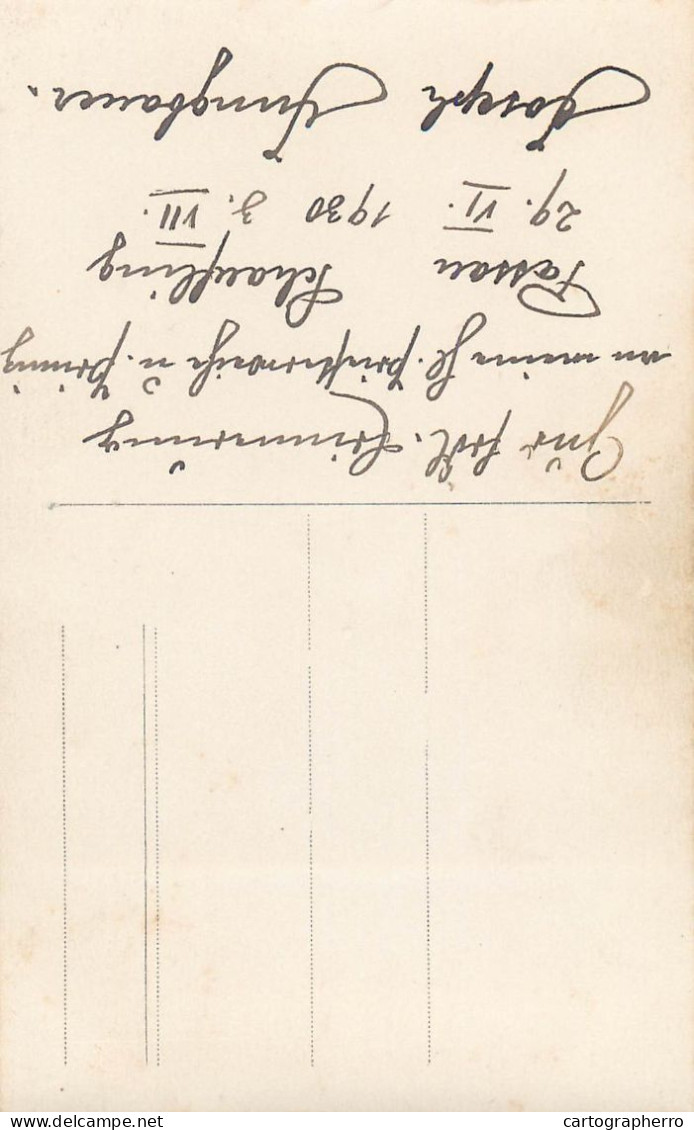 Zur frdl. Erinnerung
an meine hl. Priesterweihe u. Primiz
Passau Schaufling
29. VI. 1930 3. VII.
Joseph Jungbauer.
delcampe.net
cartographerro